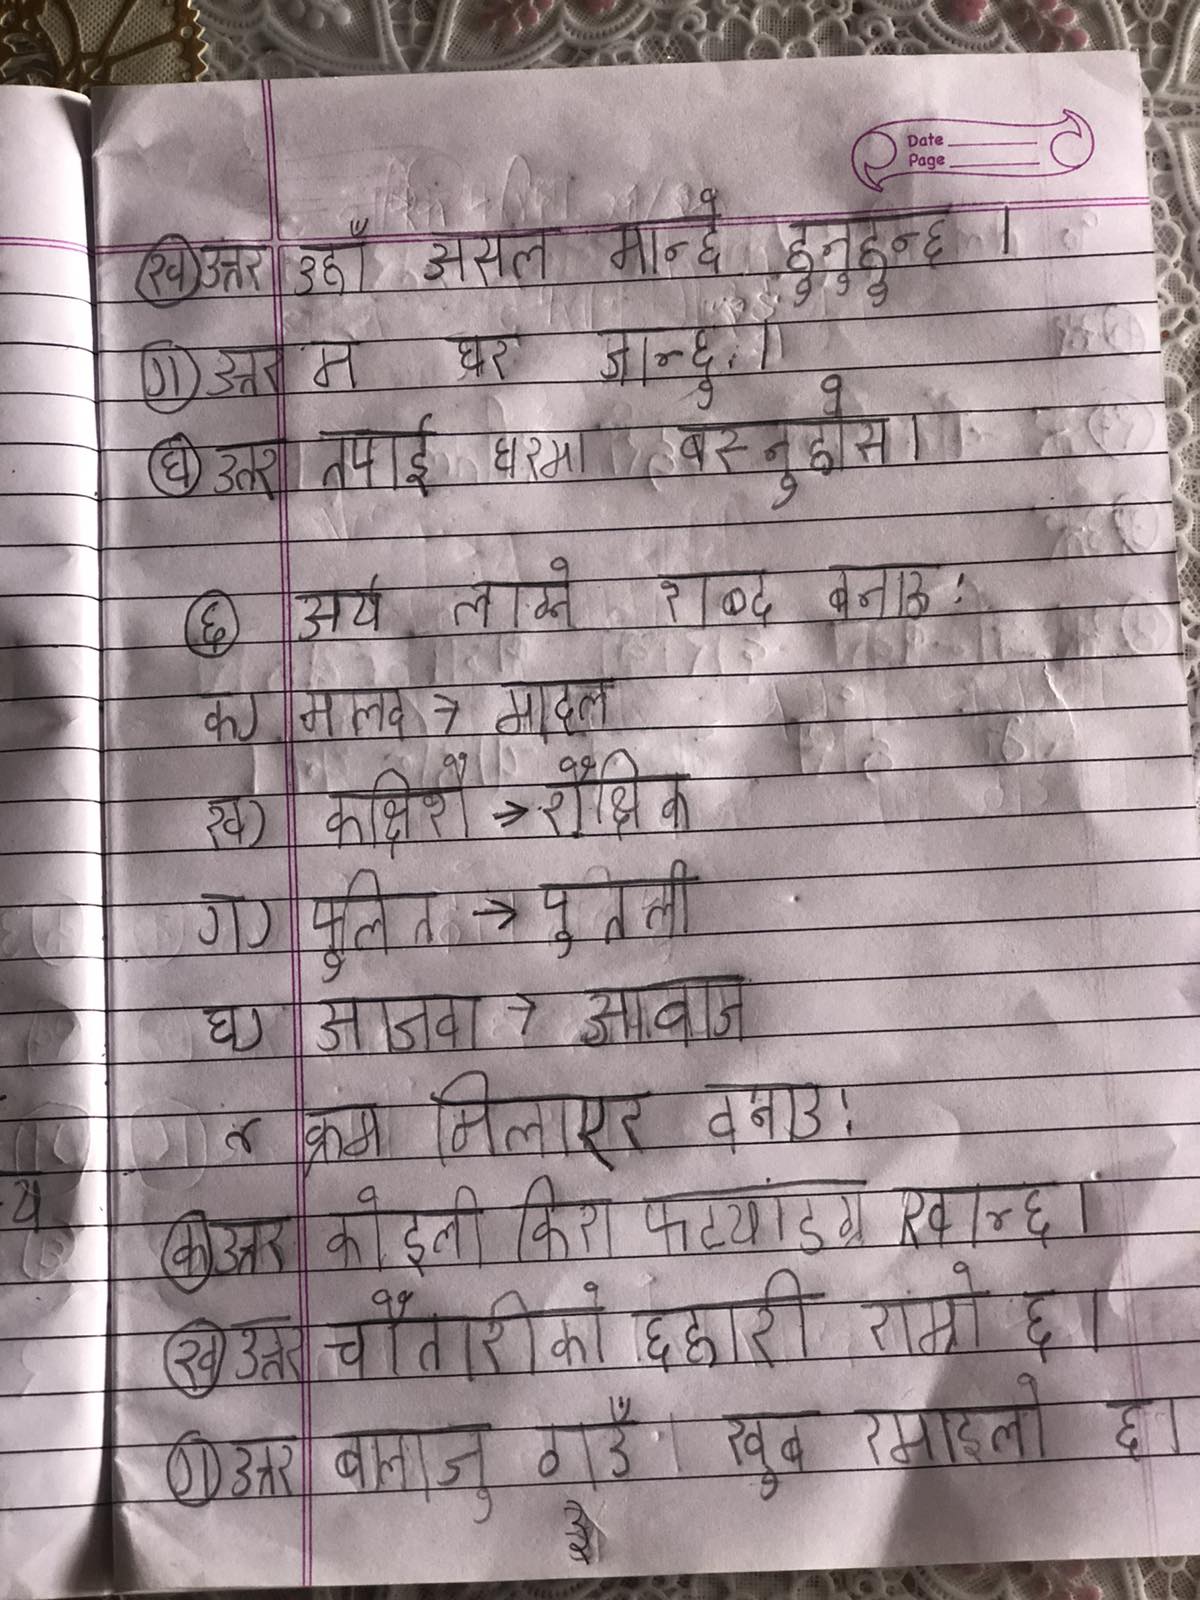 Date
Page
(ख) उत्तर उहाँ असल मान्छे हुनुहुन्छ ।
(ग) उत्तर म घर जान्छु ।
(घ) उत्तर तपाई घरमा बस्नुहोस ।
(६) अर्थ लाग्ने शब्द बनाऊ :
क) मलद → मादल
ख) कक्षिशै → शैक्षिक
ग) पुलित → पुतली
घ) आजवा → आवाज
क्रम मिलाएर बनाउ :
(क) उत्तर कोइली किरा फट्याङग्रा खान्छ ।
(ख) उत्तर चौतारीको छहारी राम्रो छ ।
(ग) उत्तर बालाजु ठाउँ । खुब रमाइलो छ ।